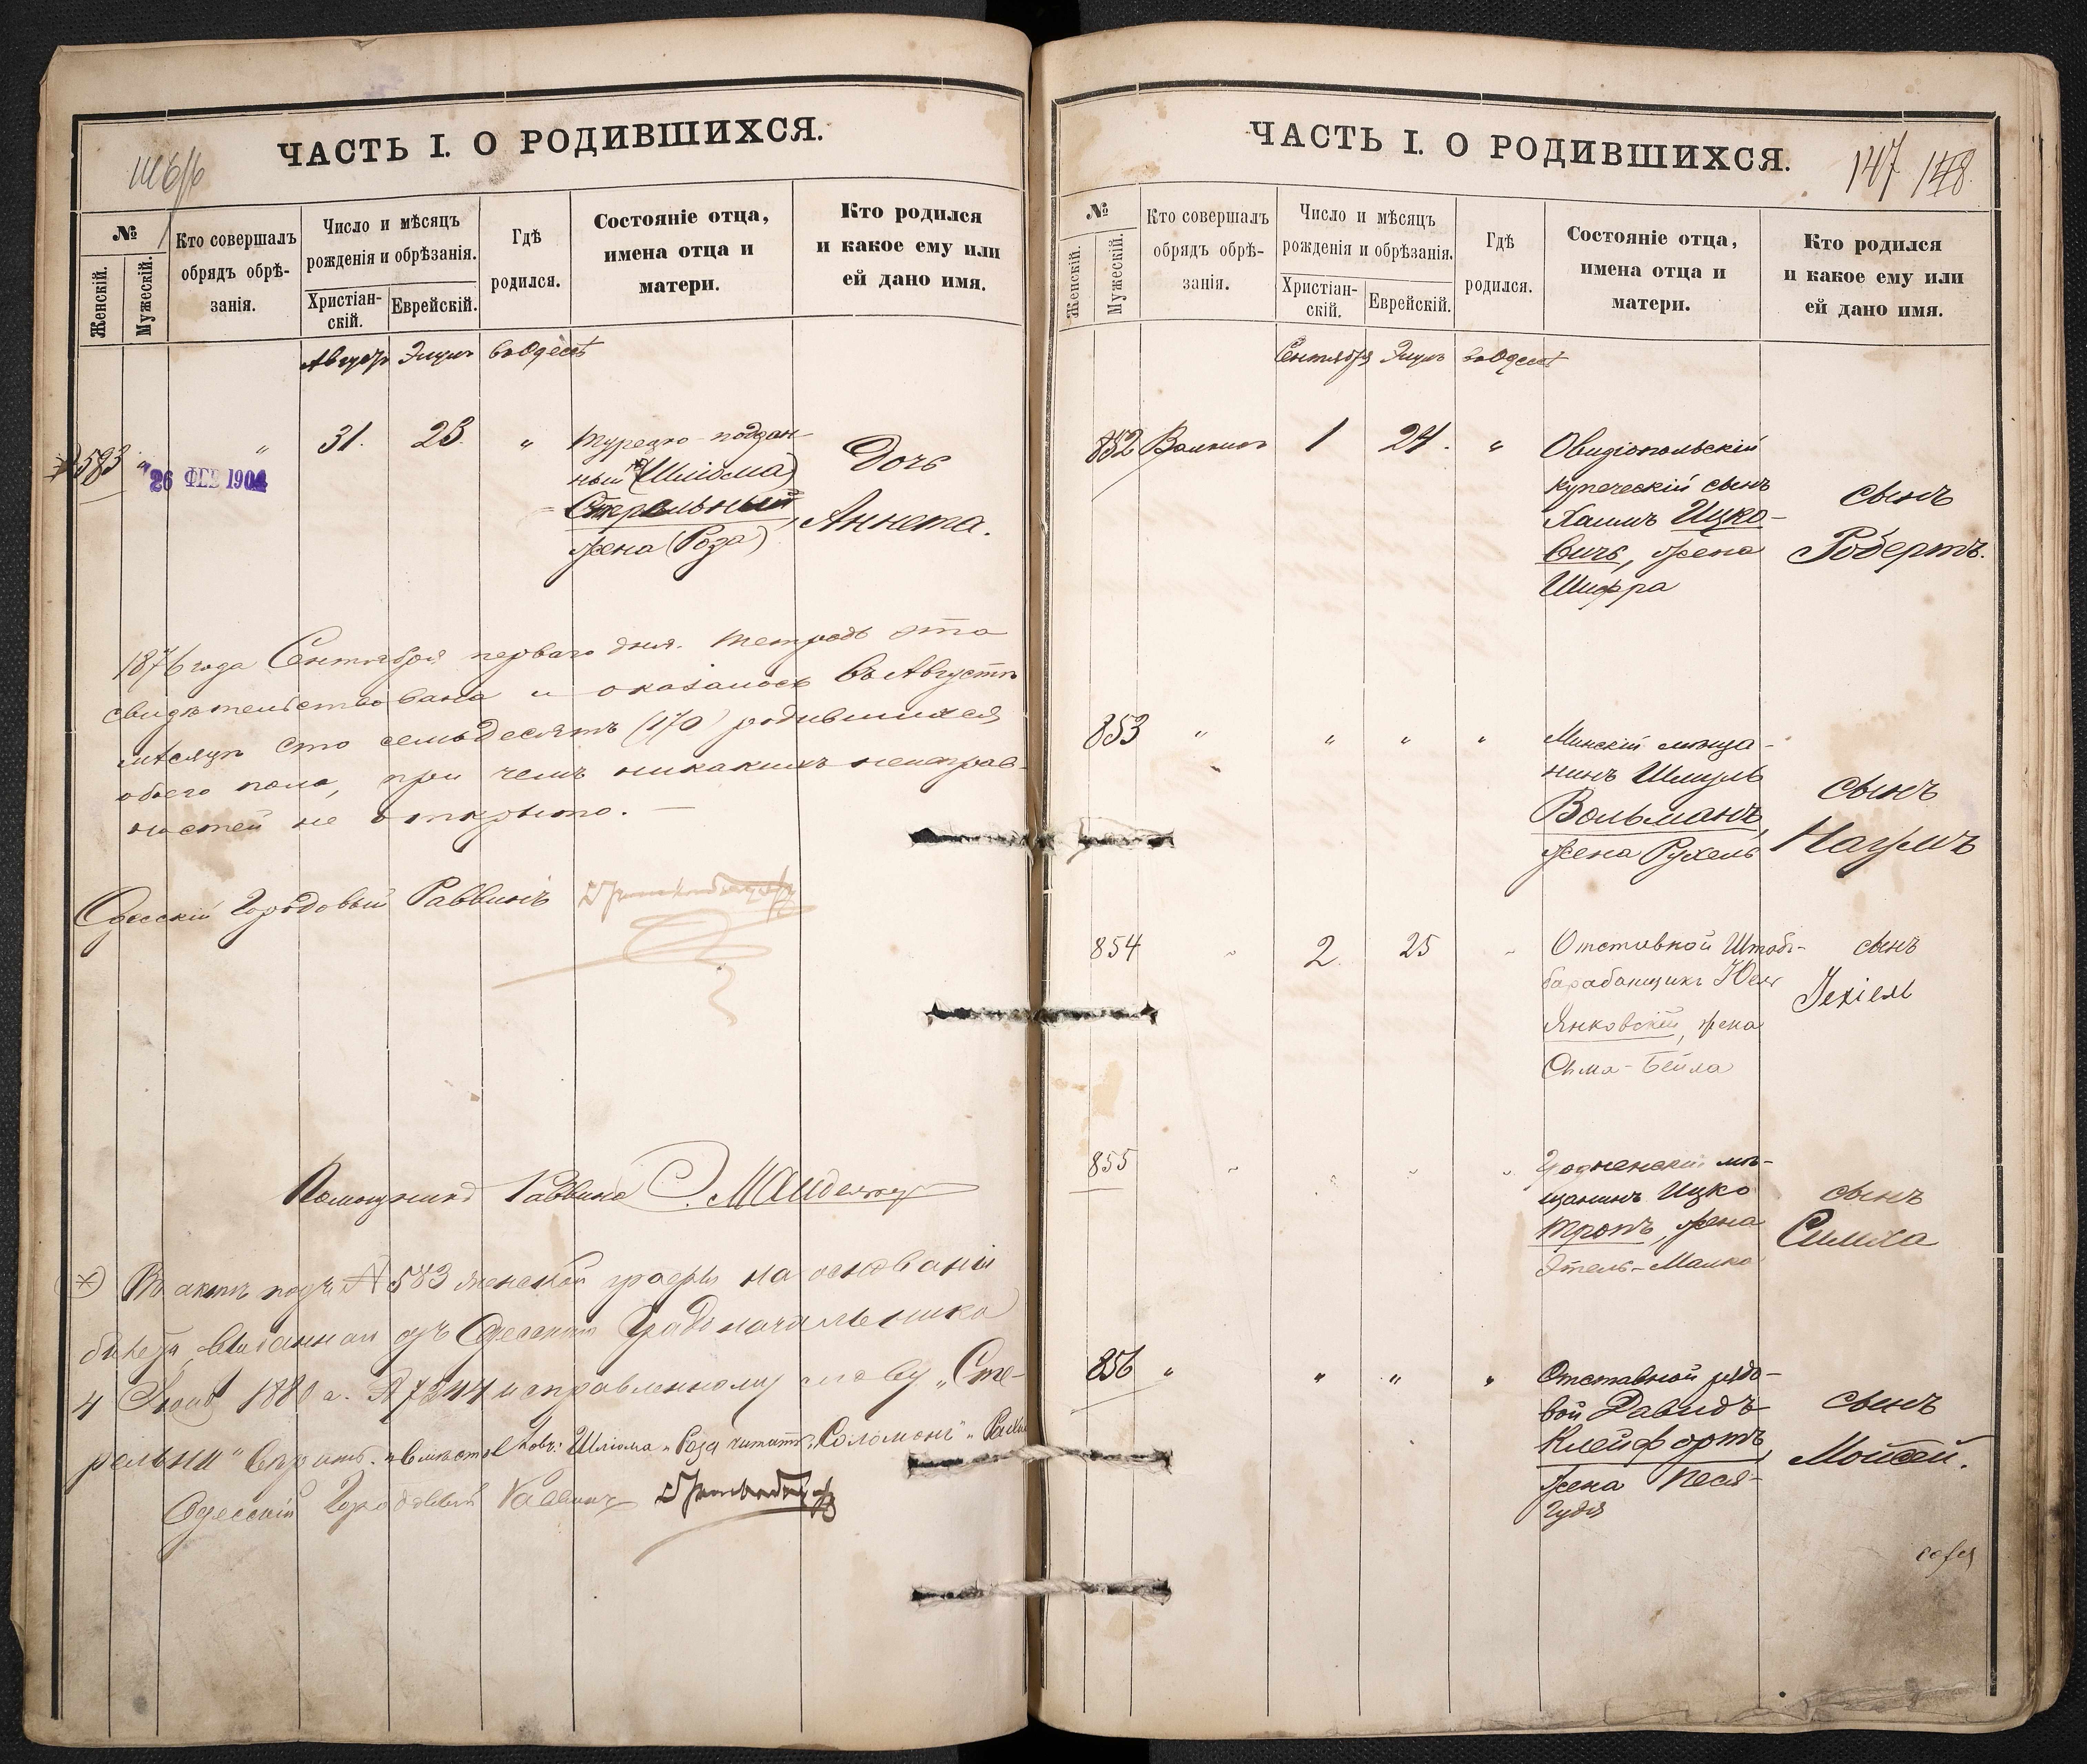 ЧАСТЬ I. О РОДИВШИХСЯ.
№
Женскій.
Мужескій.
Кто совершалъ
обрядъ обрѣ-
занія.
Число и мѣсяцъ
рожденія и обрѣзанія.
Христіан-
скій.
Еврейскій.
Гдѣ
родился.
Состояніе отца,
имена отца и
матери.
Кто родился
и какое ему или
ей дано имя.
Августъ Элулъ въ Одессѣ
583 " " 31. 23. "
26 ФЕВ 1904
Турецко-поддан-
ный (Шліома)
Стеральный
жена (Роза)
Дочь
Аннета.
1876 года Сентября перваго дня. Тетрадь эта
свидѣтельствована и оказалось въ Августѣ
мѣсяцѣ сто семьдесятъ (170) родившихся
обоего пола, при чемъ никакихъ неисправ-
ностей не открыто. —
Одесскій Городовый Раввинъ
Помощникъ Раввина
Въ актѣ подъ № 583 женской графы на основаніи
билета, выданнаго отъ Одесскаго Градоначальника
4 1880 г. № исправленному слову „Сте-
ральни" вѣрить. и вмѣсто словъ: Шліома и Роза читать „Соломонъ"
Одесскій Городовый Раввинъ
ЧАСТЬ I. О РОДИВШИХСЯ.
147 148
№
Женскій.
Мужескій.
Кто совершалъ
обрядъ обрѣ-
занія.
Число и мѣсяцъ
рожденія и обрѣзанія.
Христіан-
скій.
Еврейскій.
Гдѣ
родился.
Состояніе отца,
имена отца и
матери.
Кто родился
и какое ему или
ей дано имя.
Сентября Элулъ въ Одессѣ
852 1 24. "
Овидіопольскій
купеческій сынъ
Хаимъ Ицко-
вичъ, жена
Шифра
сынъ
Робертъ.
853 " " " "
Минскій мѣща-
нинъ Шмуль
Вольманъ,
жена Рухель
сынъ
Наумъ
854 " 2 25 "
Отставной Штабъ-
барабанщикъ
Янковскій, жена
Сима-Бейла
сынъ
Іехіель
855 " " " "
Гродненскій мѣ-
щанинъ Ицко
Тропъ, жена
Этель-Малка
сынъ
Симха
856 " " " "
Отставной рядо-
вой Давидъ
Клейфортъ,
жена Песя-
Гудя
сынъ
Мойсей.